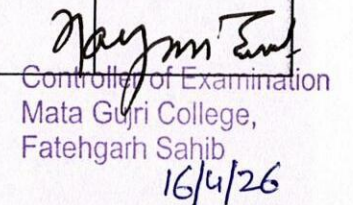 Controller of Examination
Mata Gujri College,
Fatehgarh Sahib
16/4/26